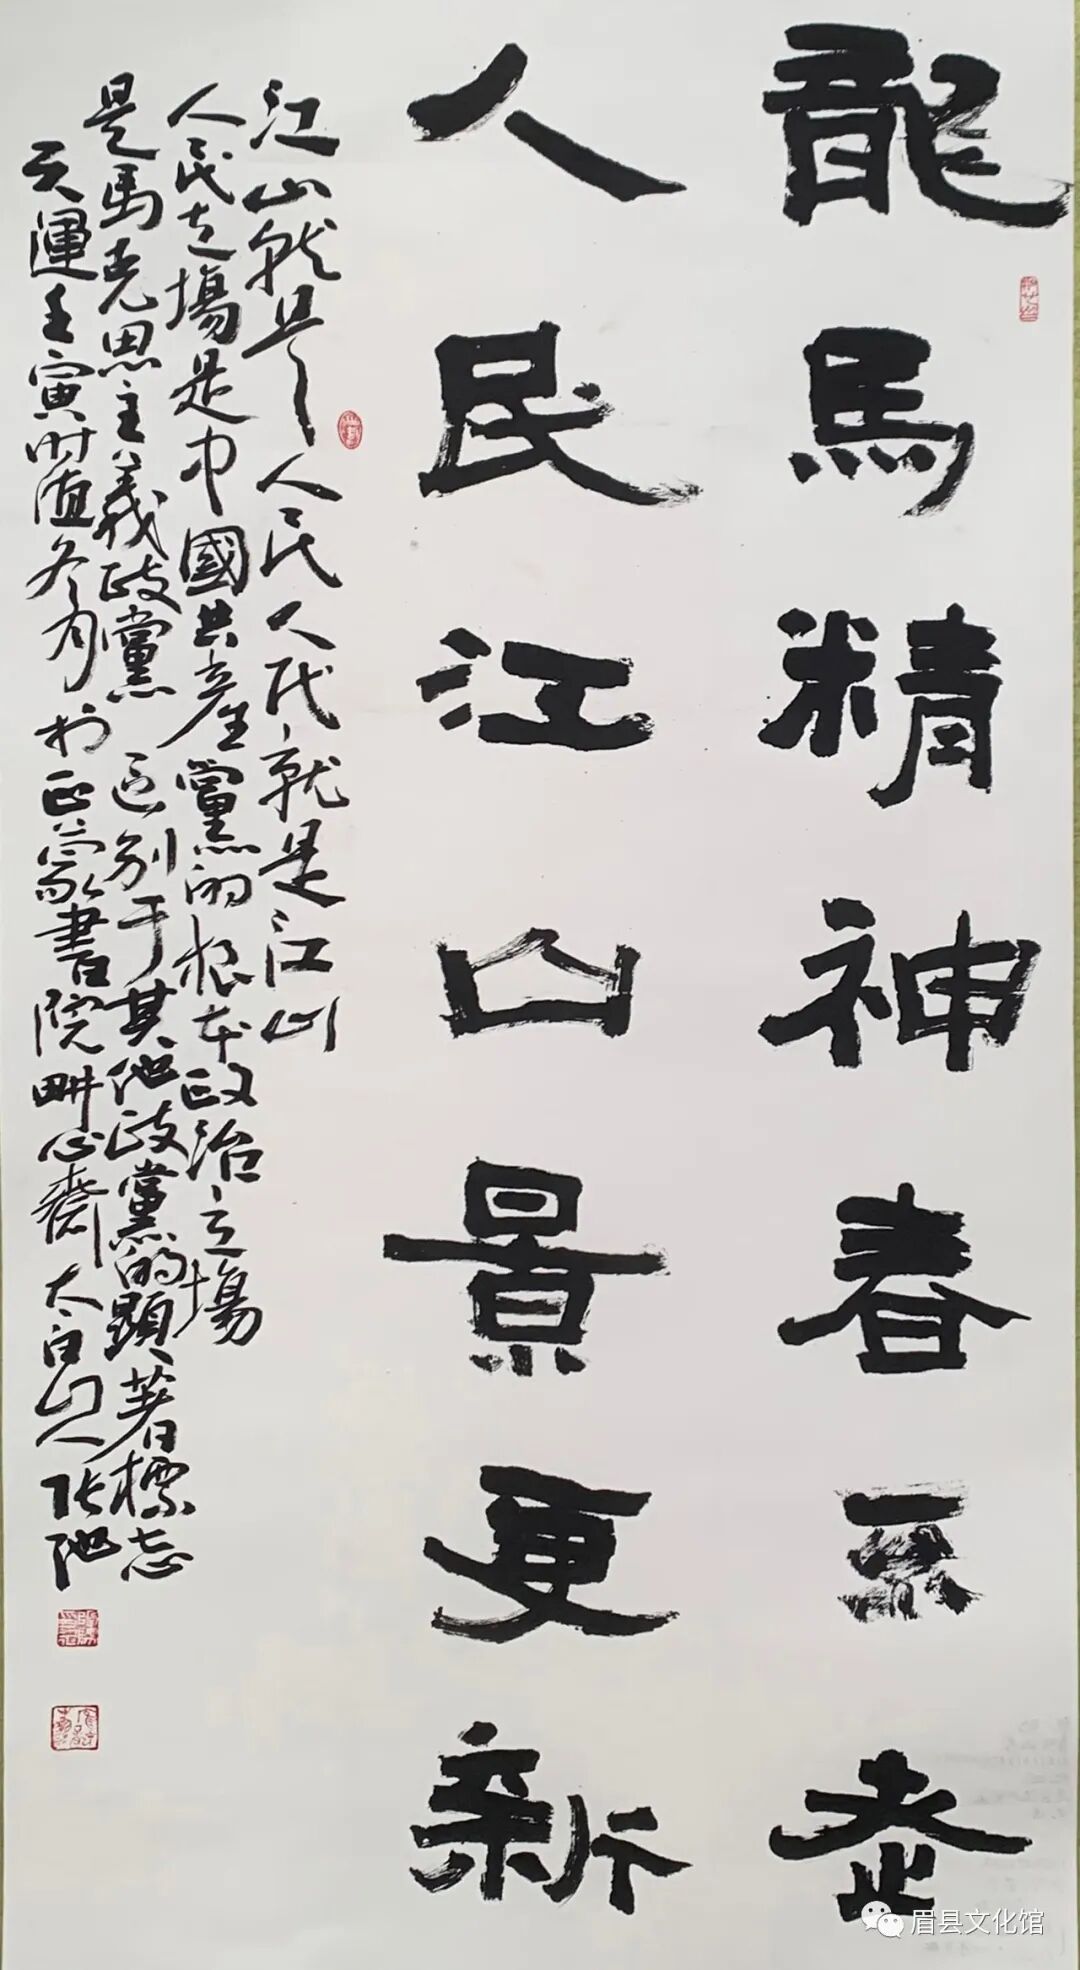 龍馬精神春不老
人民江山景更新
江山就是人民人民就是江山
人民立場是中國共產黨的根本政治立場
是馬克思主義政黨區别于其他政黨的顯著標志
天運壬寅時值冬月於正蒙書院畊心齋太白山人張
眉县文化馆